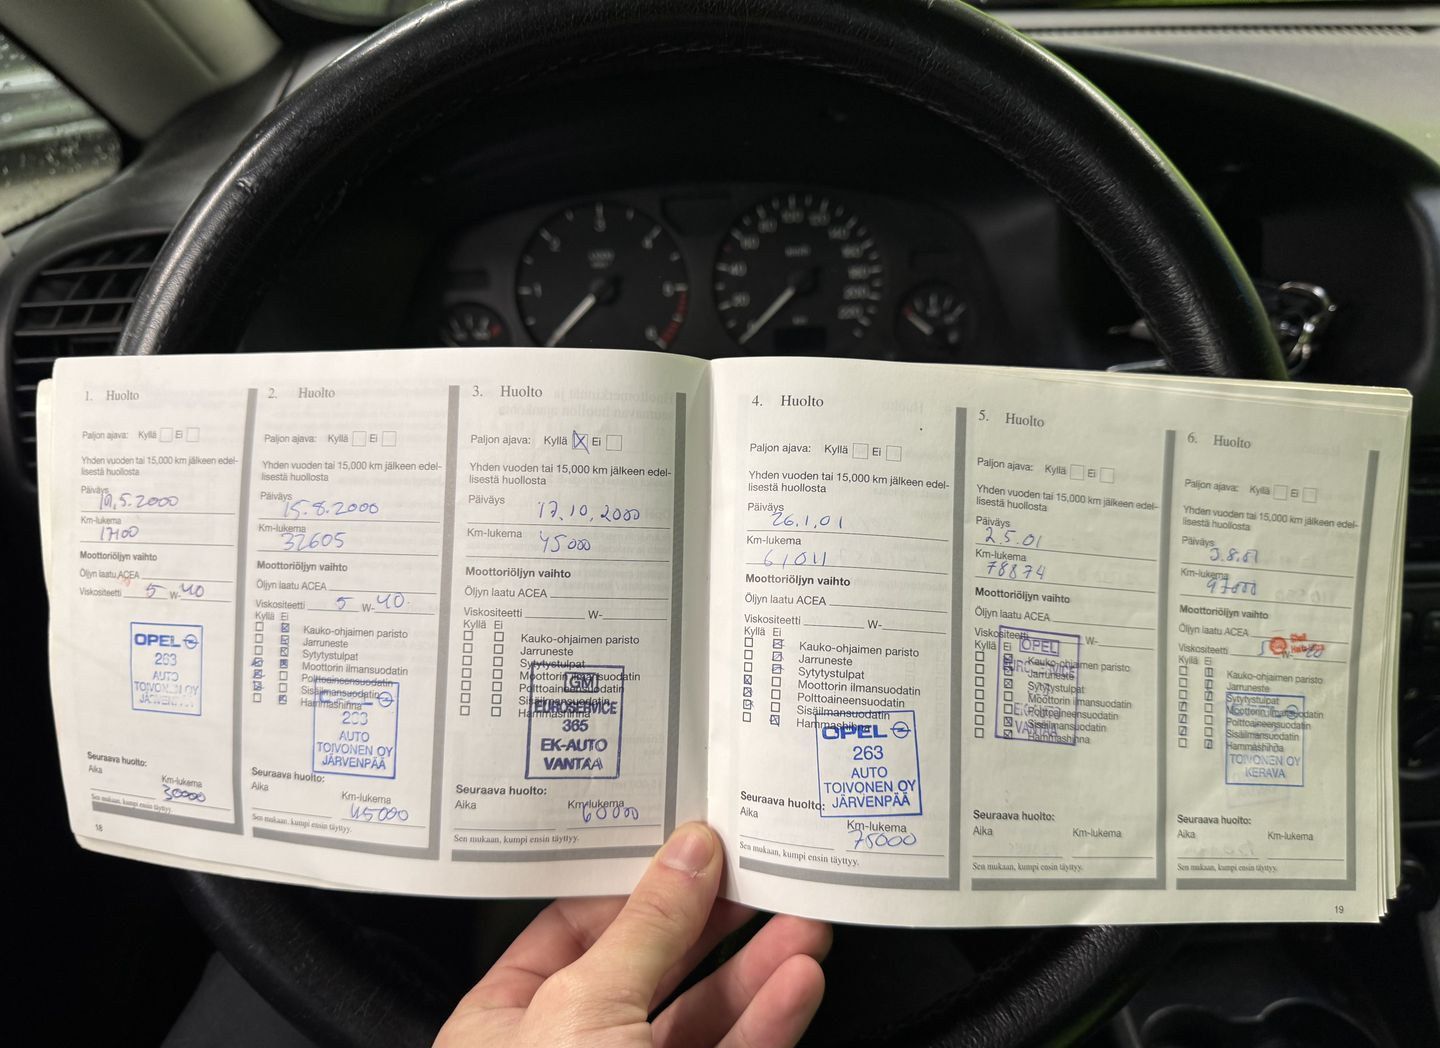 1. Huolto
Paljon ajava: Kyllä Ei
Yhden vuoden tai 15,000 km jälkeen edel-
lisestä huollosta
Päiväys
.5.2000
Km-lukema
17100
Moottoriöljyn vaihto
Öljyn laatu ACEA
Viskositeetti 5 W- 40
OPEL
263
AUTO
TOIVONEN OY
JÄRVENPÄÄ
Seuraava huolto:
Aika
Km-lukema
30000
Sen mukaan, kumpi ensin täyttyy.
18
2. Huolto
Paljon ajava: Kyllä Ei
Yhden vuoden tai 15,000 km jälkeen edel-
lisestä huollosta
Päiväys
15.8.2000
Km-lukema
32605
Moottoriöljyn vaihto
Öljyn laatu ACEA
Viskositeetti 5 W- 40.
Kyllä Ei
Kauko-ohjaimen paristo
Jarruneste
Sytytystulpat
Moottorin ilmansuodatin
Polttoaineensuodatin
Sisäilmansuodatin
Hammashihna
263
AUTO
TOIVONEN OY
JÄRVENPÄÄ
Seuraava huolto:
Aika
Km-lukema
45000
Sen mukaan, kumpi ensin täyttyy.
3. Huolto
Paljon ajava: Kyllä X Ei
Yhden vuoden tai 15,000 km jälkeen edel-
lisestä huollosta
Päiväys
17.10.2000
Km-lukema
45000
Moottoriöljyn vaihto
Öljyn laatu ACEA
Viskositeetti W-
Kyllä Ei
Kauko-ohjaimen paristo
Jarruneste
Sytytystulpat
Moottorin ilmansuodatin
Polttoaineensuodatin
Sisäilmansuodatin
Hammashihna
GM
EUROSERVICE
365
EK-AUTO
VANTAA
Seuraava huolto:
Aika
Km-lukema
60000
Sen mukaan, kumpi ensin täyttyy.
4. Huolto
Paljon ajava: Kyllä Ei
Yhden vuoden tai 15,000 km jälkeen edel-
lisestä huollosta
Päiväys
26.1.01
Km-lukema
61011
Moottoriöljyn vaihto
Öljyn laatu ACEA
Viskositeetti W-
Kyllä Ei
Kauko-ohjaimen paristo
Jarruneste
Sytytystulpat
Moottorin ilmansuodatin
Polttoaineensuodatin
Sisäilmansuodatin
Hammashihna
OPEL
263
AUTO
TOIVONEN OY
JÄRVENPÄÄ
Seuraava huolto:
Aika
Km-lukema
75000
Sen mukaan, kumpi ensin täyttyy.
5. Huolto
Paljon ajava: Kyllä Ei
Yhden vuoden tai 15,000 km jälkeen edel-
lisestä huollosta
Päiväys
2.5.01
Km-lukema
78874
Moottoriöljyn vaihto
Öljyn laatu ACEA
Viskositeetti W-
Kyllä Ei
Kauko-ohjaimen paristo
Jarruneste
Sytytystulpat
Moottorin ilmansuodatin
Polttoaineensuodatin
Sisäilmansuodatin
Hammashihna
OPEL
EUROSERVICE
VANTAA
Seuraava huolto:
Aika Km-lukema
Sen mukaan, kumpi ensin täyttyy.
6. Huolto
Paljon ajava: Kyllä Ei
Yhden vuoden tai 15,000 km jälkeen edel-
lisestä huollosta
Päiväys
3.8.01
Km-lukema
97000
Moottoriöljyn vaihto
Öljyn laatu ACEA
Viskositeetti 5 W-
Kyllä Ei
Kauko-ohjaimen paristo
Jarruneste
Sytytystulpat
Moottorin ilmansuodatin
Polttoaineensuodatin
Sisäilmansuodatin
Hammashihna
TOIVONEN OY
KERAVA
Seuraava huolto:
Aika Km-lukema
Sen mukaan, kumpi ensin täyttyy.
19